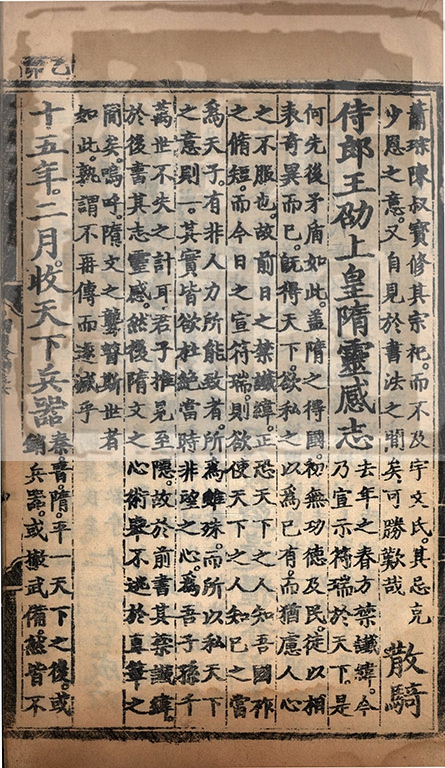 乙卯
蕭琮陳叔寶修其宗祀。而不及宇文氏。其忌克
少恩之意。又自見於書法之間矣可勝歎哉
散騎
侍郎王劭上皇隋靈感志
去年之春方禁讖緯。今
乃宣示符瑞於天下。是
何先後矛盾如此。蓋隋之得國。初無功德及民。徒以相
表奇異而已。旣得天下。欲私之以爲己有。而猶慮人心
之不服也。故前日之禁讖緯。正恐天下之人知吾國祚
之脩短。而今日之宣符瑞。則欲使天下之人知己之當
爲天子。有非人力所能致者。所爲雖殊。而所以私天下
之意則一。其實皆欲杜絕當時非望之心。爲吾子孫千
萬世不失之計耳君子推見至隱。故於前書其禁讖緯。
於後書其志靈感。然後隋文之心術舉不逃於直筆之
間矣。嗚呼。隋文之聾瞽斯世者
如此。孰謂不再傳而遂滅乎
十五年。二月。收天下兵器
秦書隋。平一天下之後。或
銷兵器。或撤武備。然皆不